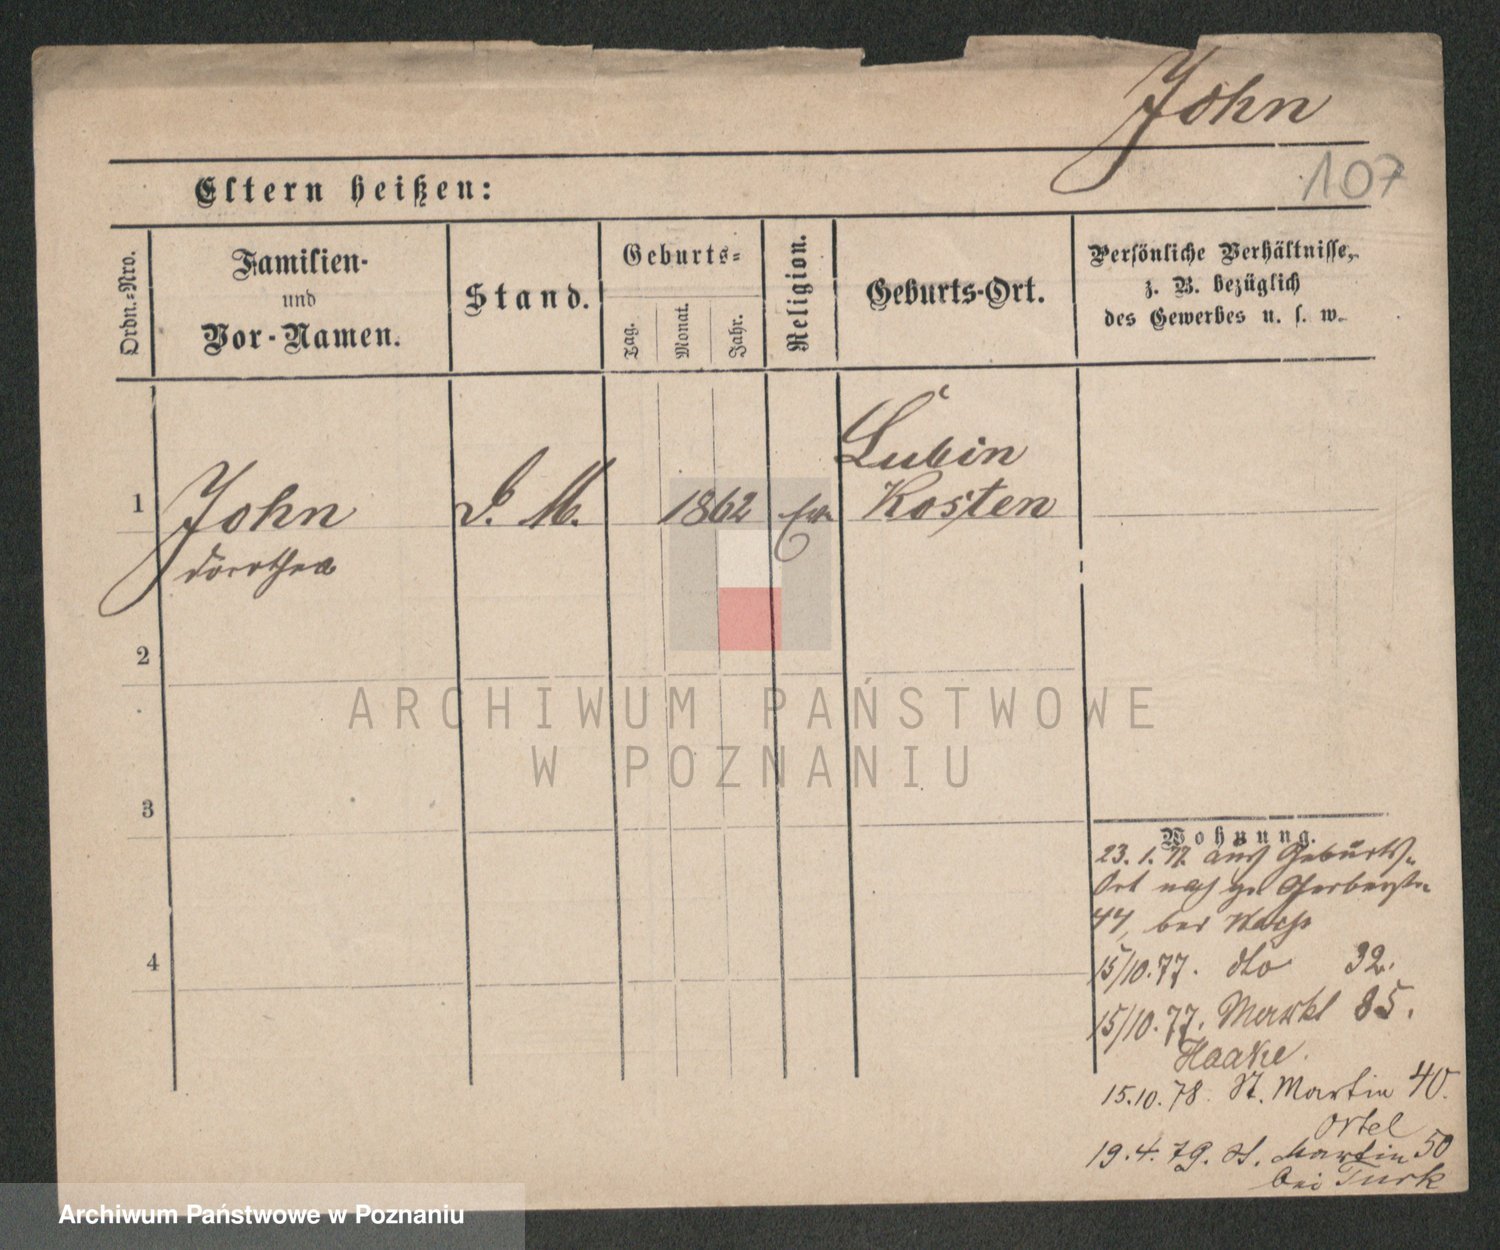 John
107
Eltern heißen:
Ordn.-Nro.
Familien-
und
Vor-Namen.
Stand.
Geburts-
Tag.
Monat.
Jahr.
Religion.
Geburts-Ort.
Persönliche Verhältnisse,
z. B. bezüglich
des Gewerbes u. s. w.
1
John
Dorothea
D. M.
1862
ev.
Lubin
Kosten
2
3
4
Wohnung.
23. 1. 77. aus Geburts-
Ort nach gr. Gerberstr.
44, bei
15/10. 77. dto 32.
15/10. 77. Markt 85.
Haake.
15. 10. 78. St. Martin 40.
Ortel
19. 4. 79. St. Martin 50
bei Turk
ARCHIWUM PAŃSTWOWE
W POZNANIU
Archiwum Państwowe w Poznaniu